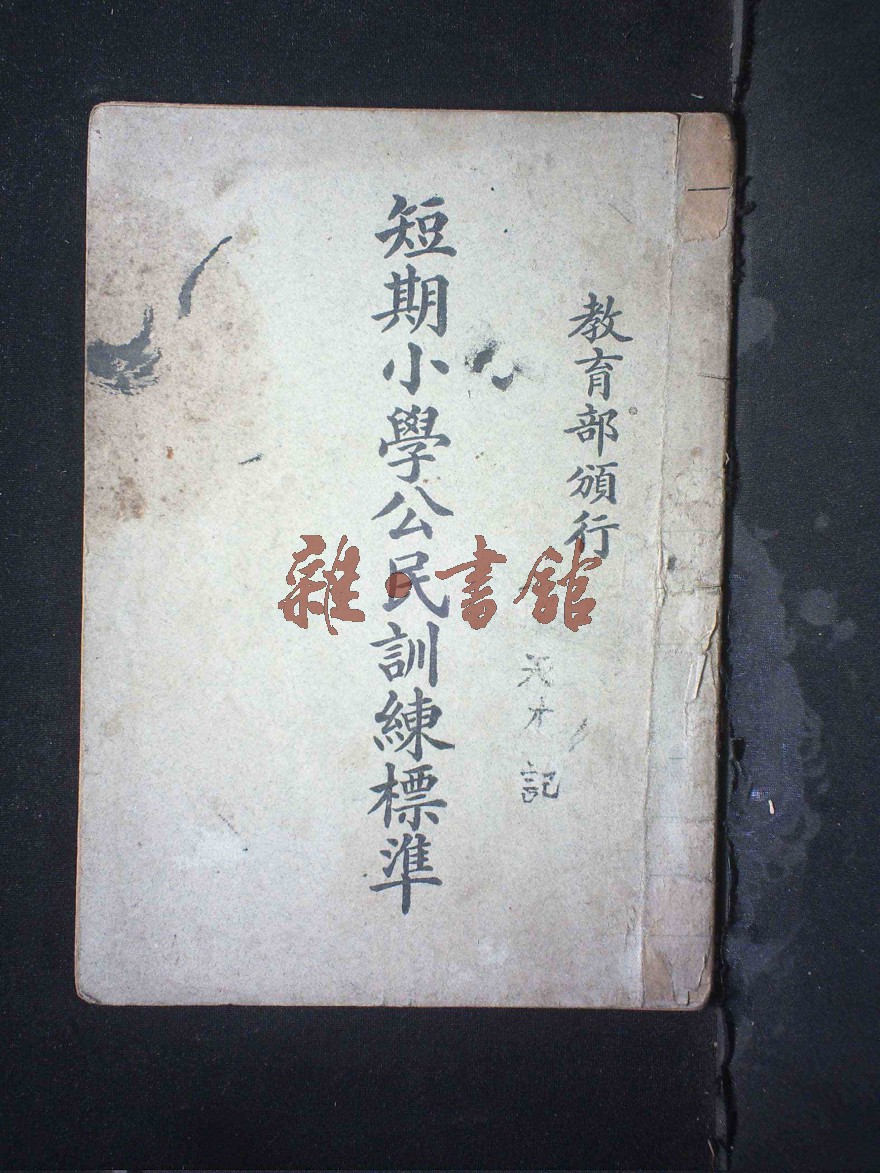 教育部頒行
天才記
短期小學公民訓練標準
雜·書館